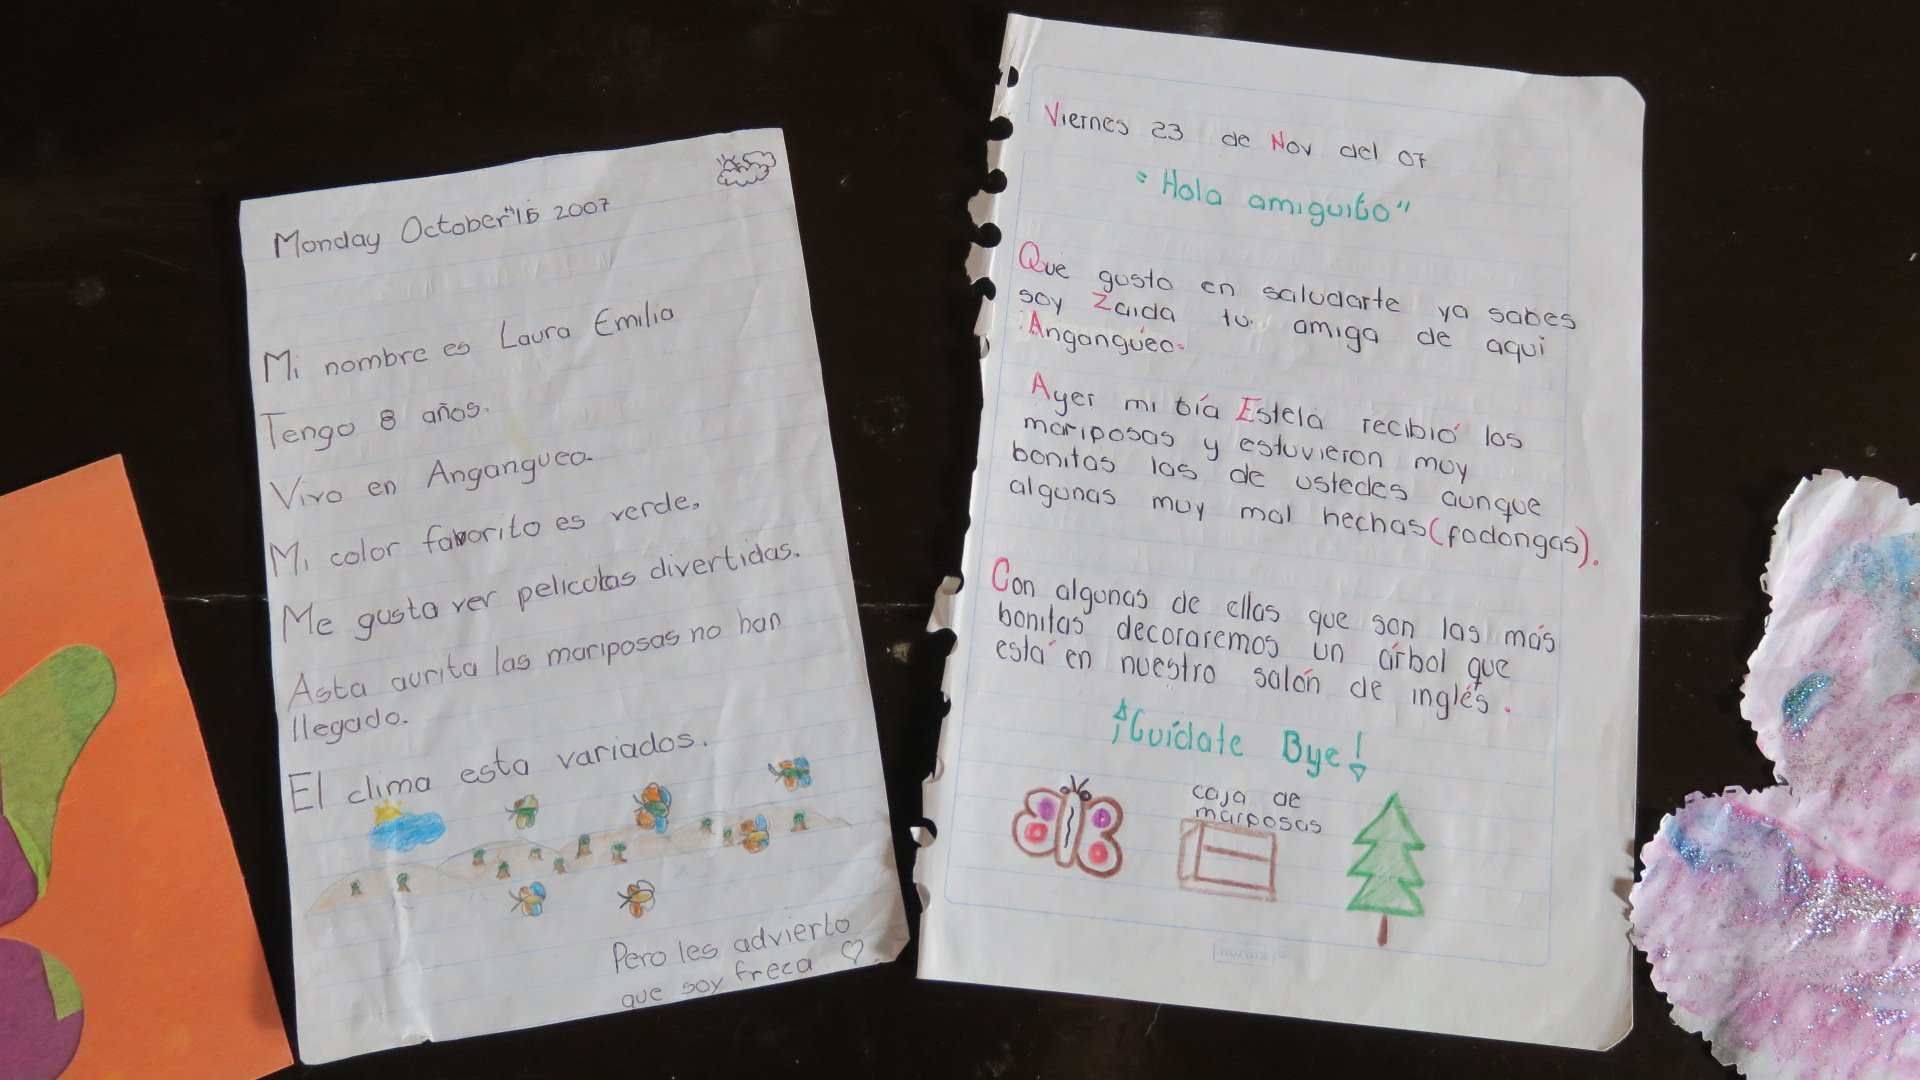 Monday October"15 2007
Mi nombre es Laura Emilia
Tengo 8 años.
Vivo en Angangueo.
Mi color favorito es verde.
Me gusta ver peliculas divertidas.
Asta aurita las mariposas no han
llegado.
El clima esta variados.
Pero les advierto
que soy freca
Viernes 23 de Nov del 07
"Hola amiguito"
Que gusto en saludarte ya sabes
soy Zaida tu amiga de aqui
Angangüeo.
Ayer mi tía Estela recibió las
mariposas y estuvieron muy
bonitas las de ustedes aunque
algunas muy mal hechas (fodongas).
Con algunas de ellas que son las más
bonitas decoraremos un árbol que
está en nuestro salón de inglés.
¡Cuídate Bye!
caja de
mariposas
norma